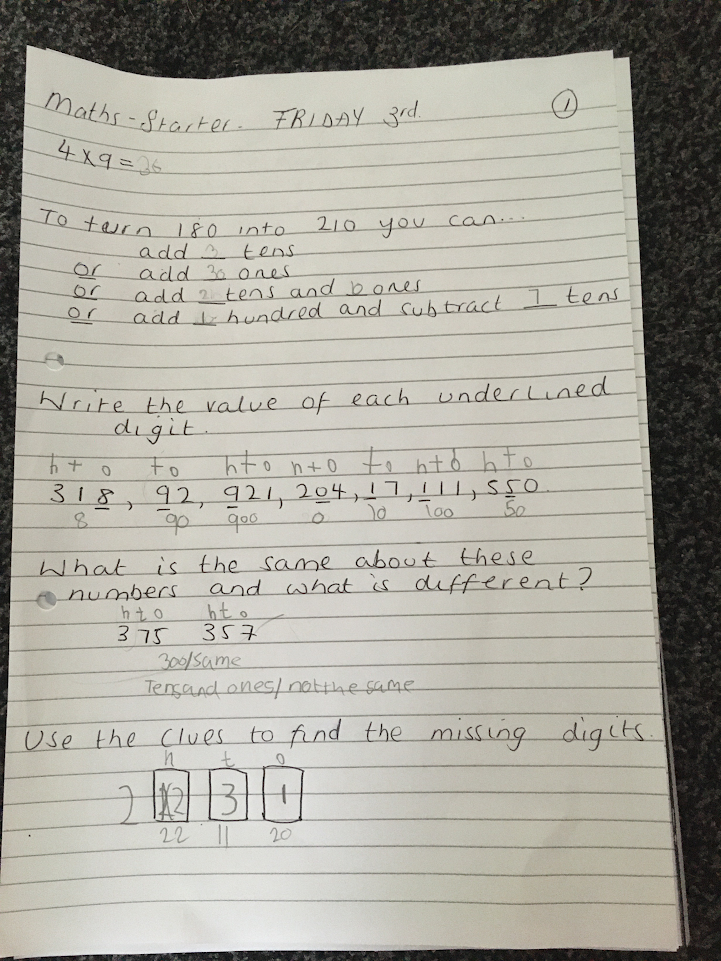 Maths-Starter. FRIDAY 3rd. 1
4 x 9 = 36
To turn 180 into 210 you can...
add 3 tens
or add 30 ones
or add 2 tens and 10 ones
or add 1 hundred and subtract 7 tens
Write the value of each underlined
digit.
h t o to hto hto to hto hto
318, 92, 921, 204, 17, 111, 550.
8 90 900 0 10 100 50
What is the same about these
numbers and what is different?
hto hto
375 357
300/same
Tens and ones/not the same
Use the clues to find the missing digits.
h t o
2 2 3 1
22 11 20